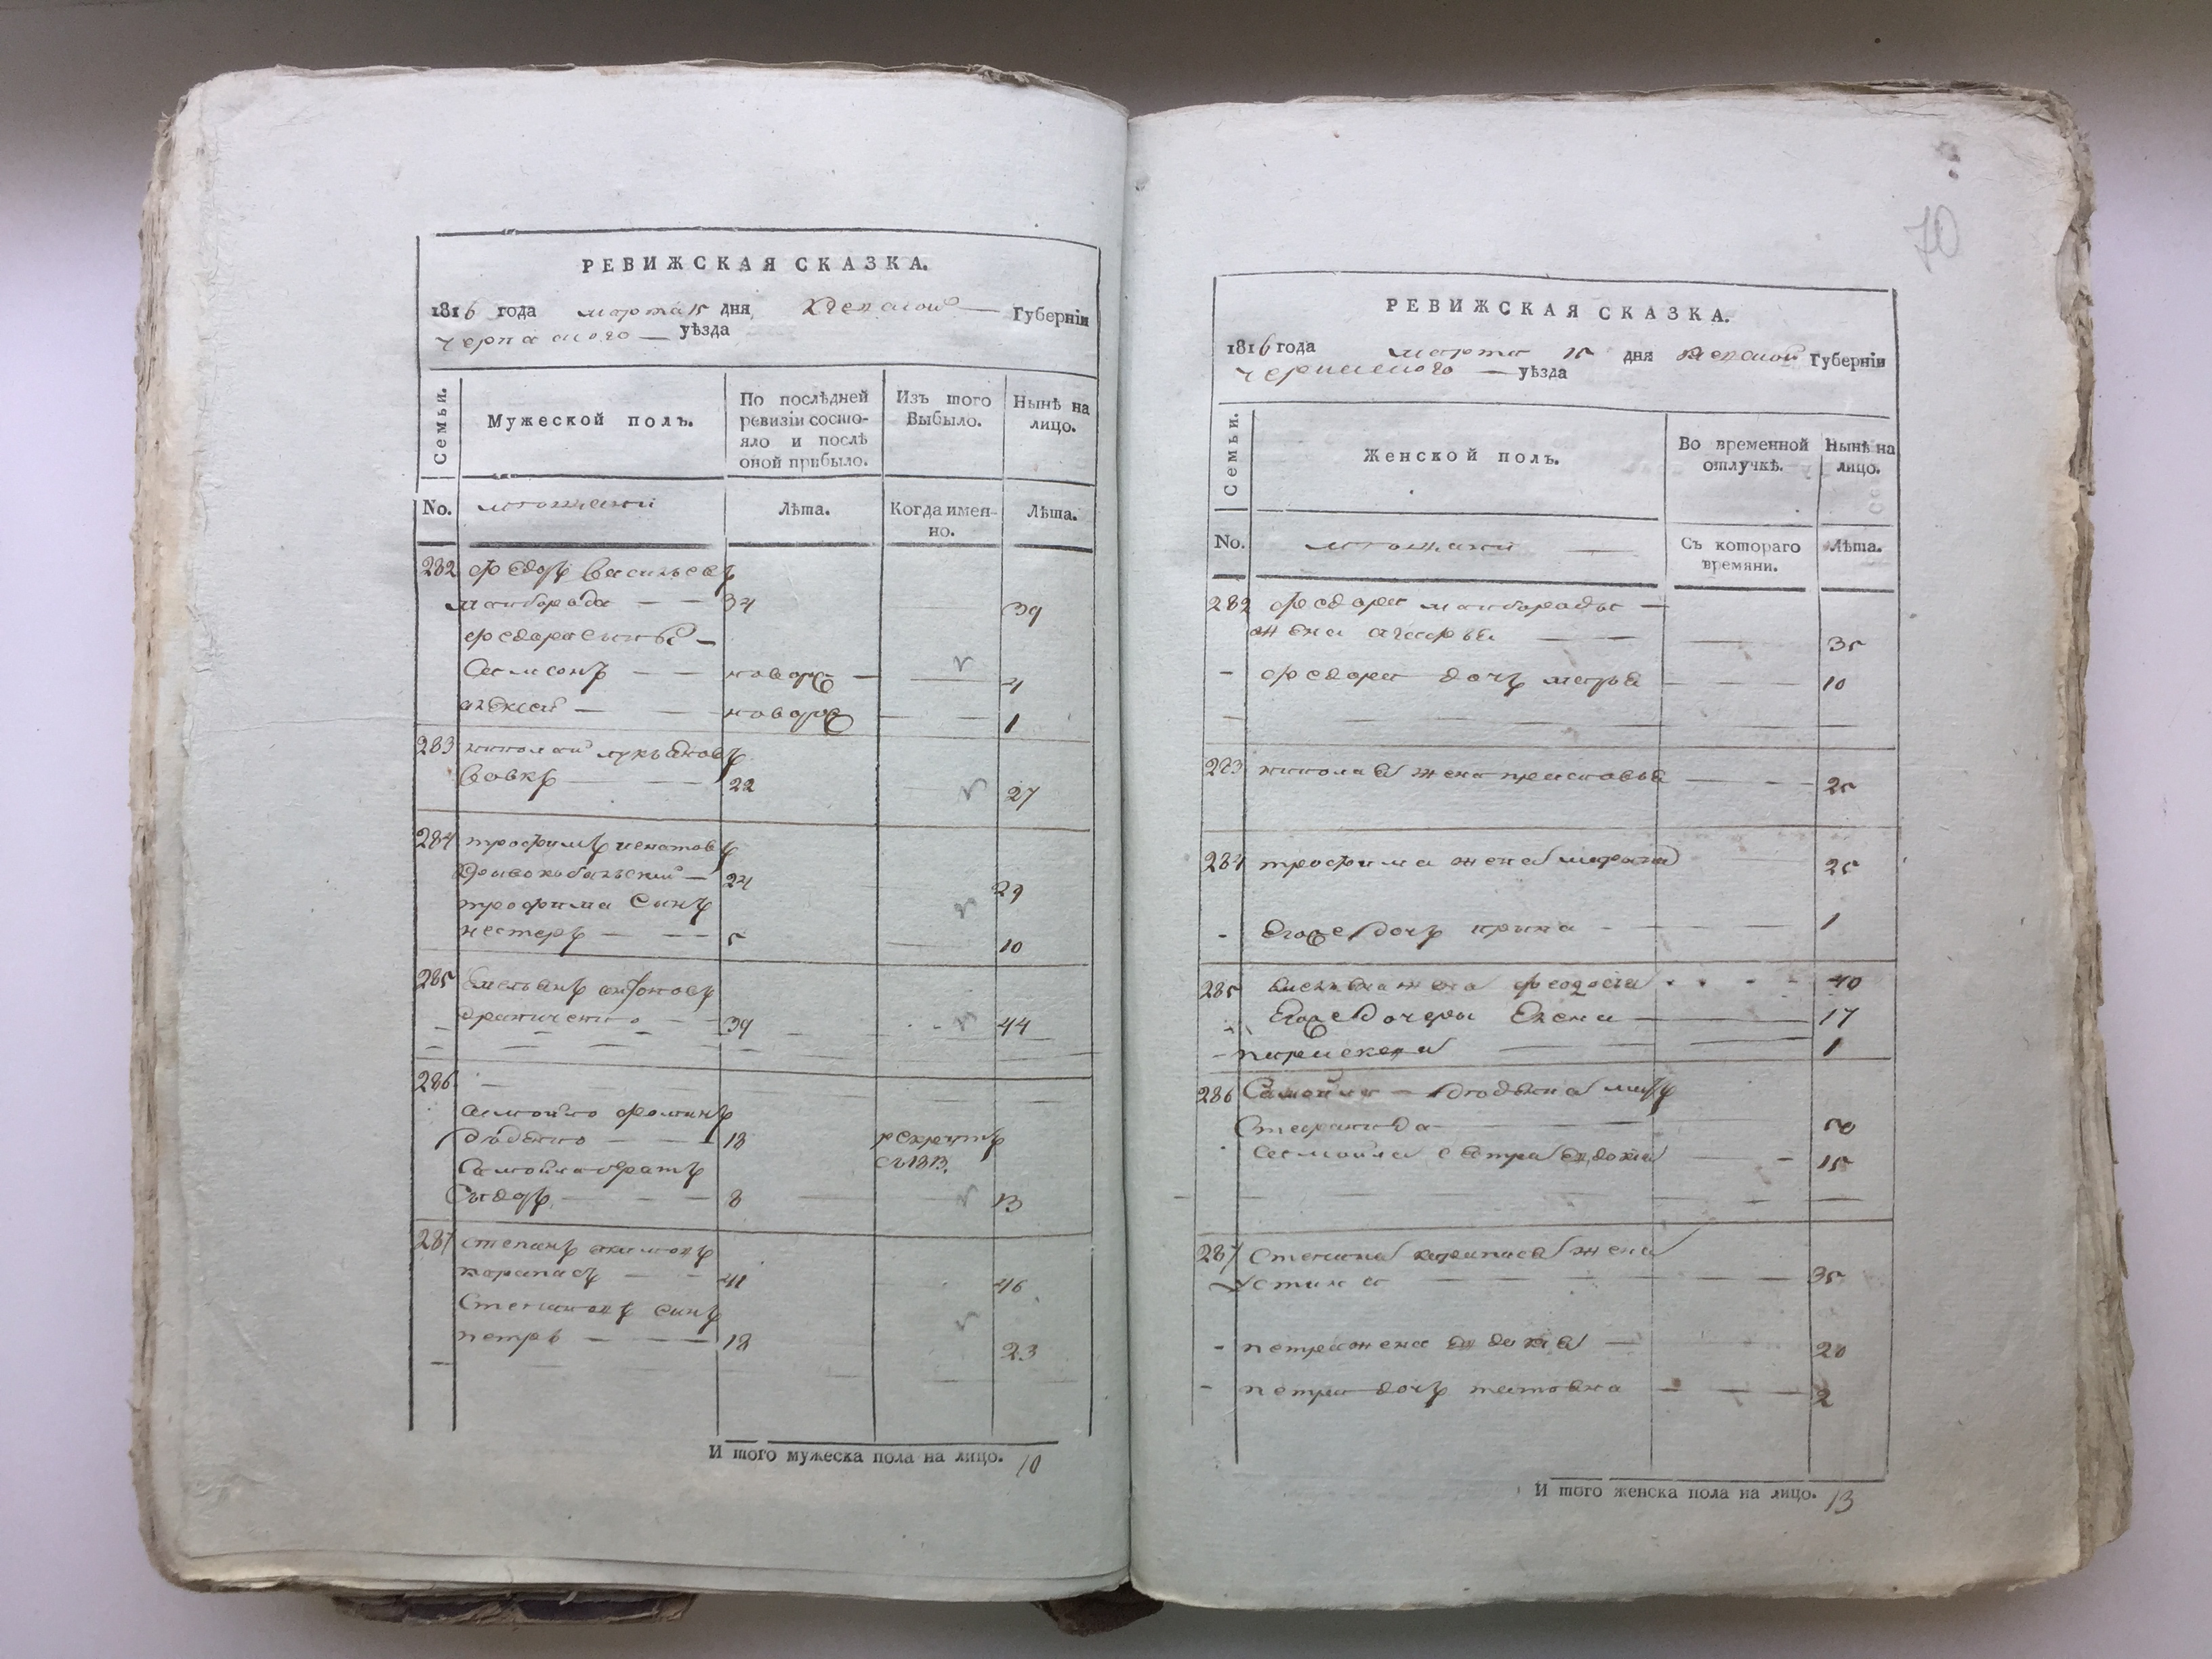 РЕВИЖСКАЯ СКАЗКА.
1816 года марта 15 дня Киевской Губерніи
уѣзда
Семьи.
Мужеской полъ.
По послѣдней ревизіи состояло и послѣ оной прибыло.
Изъ того Выбыло.
Нынѣ на лицо.
No.
мѣщане
Лѣта.
Когда именно.
Лѣта.
282 Федоръ Васильевъ
Майборода — — 34 39
Федора сыновья —
Самсонъ — — новорож — 4
алексей — — новорож 1
283 николай лукьяновъ
Вовкъ — — 22 27
284 трофимъ игнатовъ
24 29
трофима сынъ
нестеръ — — 5 10
285 Емельянъ антоновъ
39 44
286
самойло фоминъ
18 рекрутъ
въ 1813.
Самойла братъ
Сидоръ — — 8 13
287 степанъ якимовъ
карапасъ — — 41 46
Степановъ сынъ
петръ — — 18 23
И того мужеска пола на лицо. 10
70
РЕВИЖСКАЯ СКАЗКА.
1816 года марта 15 дня Киевской Губерніи
уѣзда
Семьи.
Женской полъ.
Во временной отлучкѣ.
Нынѣ на лицо.
No.
мѣщане
Съ котораго времяни.
Лѣта.
282 Федора майбороды —
жена агафья — — 35
- Федора дочь марья — 10
283 николая жена прасковья — 25
284 трофима жена марина 25
- Его же дочь ирина - 1
285 Емельяна жена феодосія 40
Его же дочери Елена — 17
- параскева — 1
286 Самойла мать
Стефанида — 50
самойла сестра евдокия — 15
287 Степана карапаса жена
Устина — — 35
- петра жена евдокія — 20
- петра дочь татьяна — 2
И того женска пола на лицо. 13